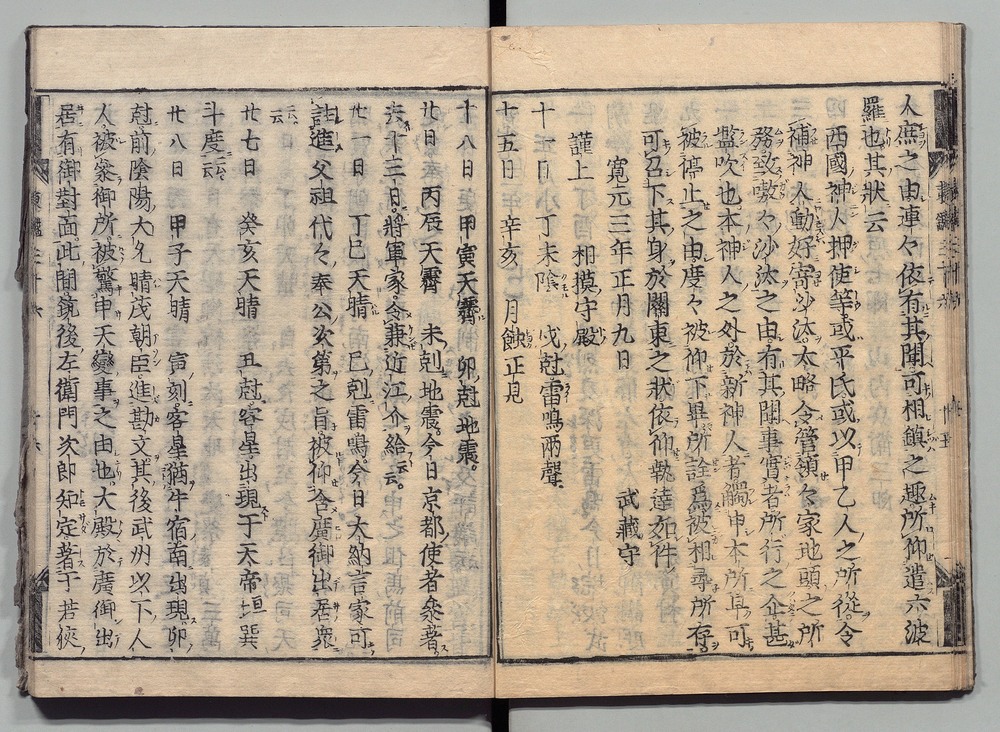 人庶之由連々依有其聞可相鎮之趣所仰遣六波
羅也其狀云
西國神人押使等或平氏或以甲乙人之所從令
補神人動好寄沙汰太略令管領々家地頭之所
務致嗷々沙汰之由有其聞事實者所行之企甚
濫吹也本神人之外於新神人者觸申本所早可
被停止之由度々被仰下畢所詮爲被相尋所存
可召下其身於關東之狀依仰執達如件
寬元三年正月九日 武藏守
謹上 相模守殿
十二日小丁未陰 戌尅雷鳴兩聲
十五日 辛亥 月蝕正見
十八日 甲寅天霽 卯尅地震。
廿日。丙辰天霽 未剋地震。今日京都使者參著。
去十三日。將軍家令兼近江介給云。
廿一日 丁巳天晴 巳剋雷鳴今日大納言家可
註進父祖代々奉公次第之旨被仰含廣御出居衆
云云
廿七日 癸亥天晴 丑尅客星出現于太帝垣巽
斗度云云
廿八日 甲子天晴 寅刻客星猶牛宿南出現卯
尅前陰陽大允晴茂朝臣進勘文其後武州以下人
人被參御所被驚申天變事之由也大殿於廣御出
居有御對面此間鏡後左衛門次郎知定著于若狹
東鑑三十六